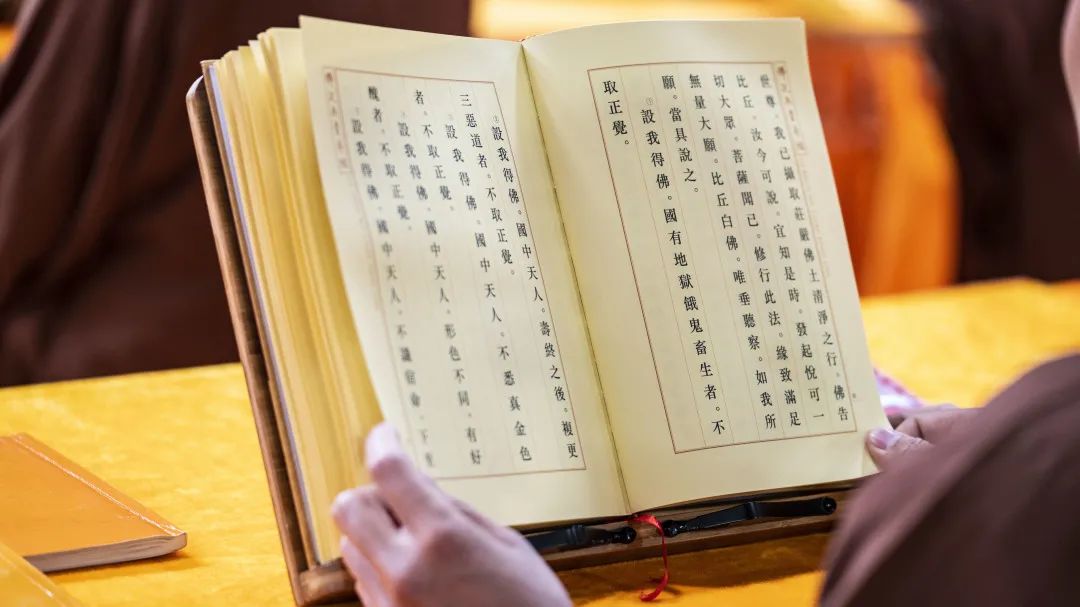 世尊。我已攝取莊嚴佛土清淨之行。佛告
比丘。汝今可說。宜知是時。發起悅可一
切大眾。菩薩聞已。修行此法。緣致滿足
無量大願。比丘白佛。唯垂聽察。如我所
願。當具說之。
①設我得佛。國有地獄餓鬼畜生者。不
取正覺。
②設我得佛。國中天人。壽終之後。複更
三惡道者。不取正覺。
③設我得佛。國中天人。不悉真金色
者。不取正覺。
設我得佛。國中天人。形色不同。有好
醜者。不取正覺。
設我得佛。國中天人。不識宿命。下